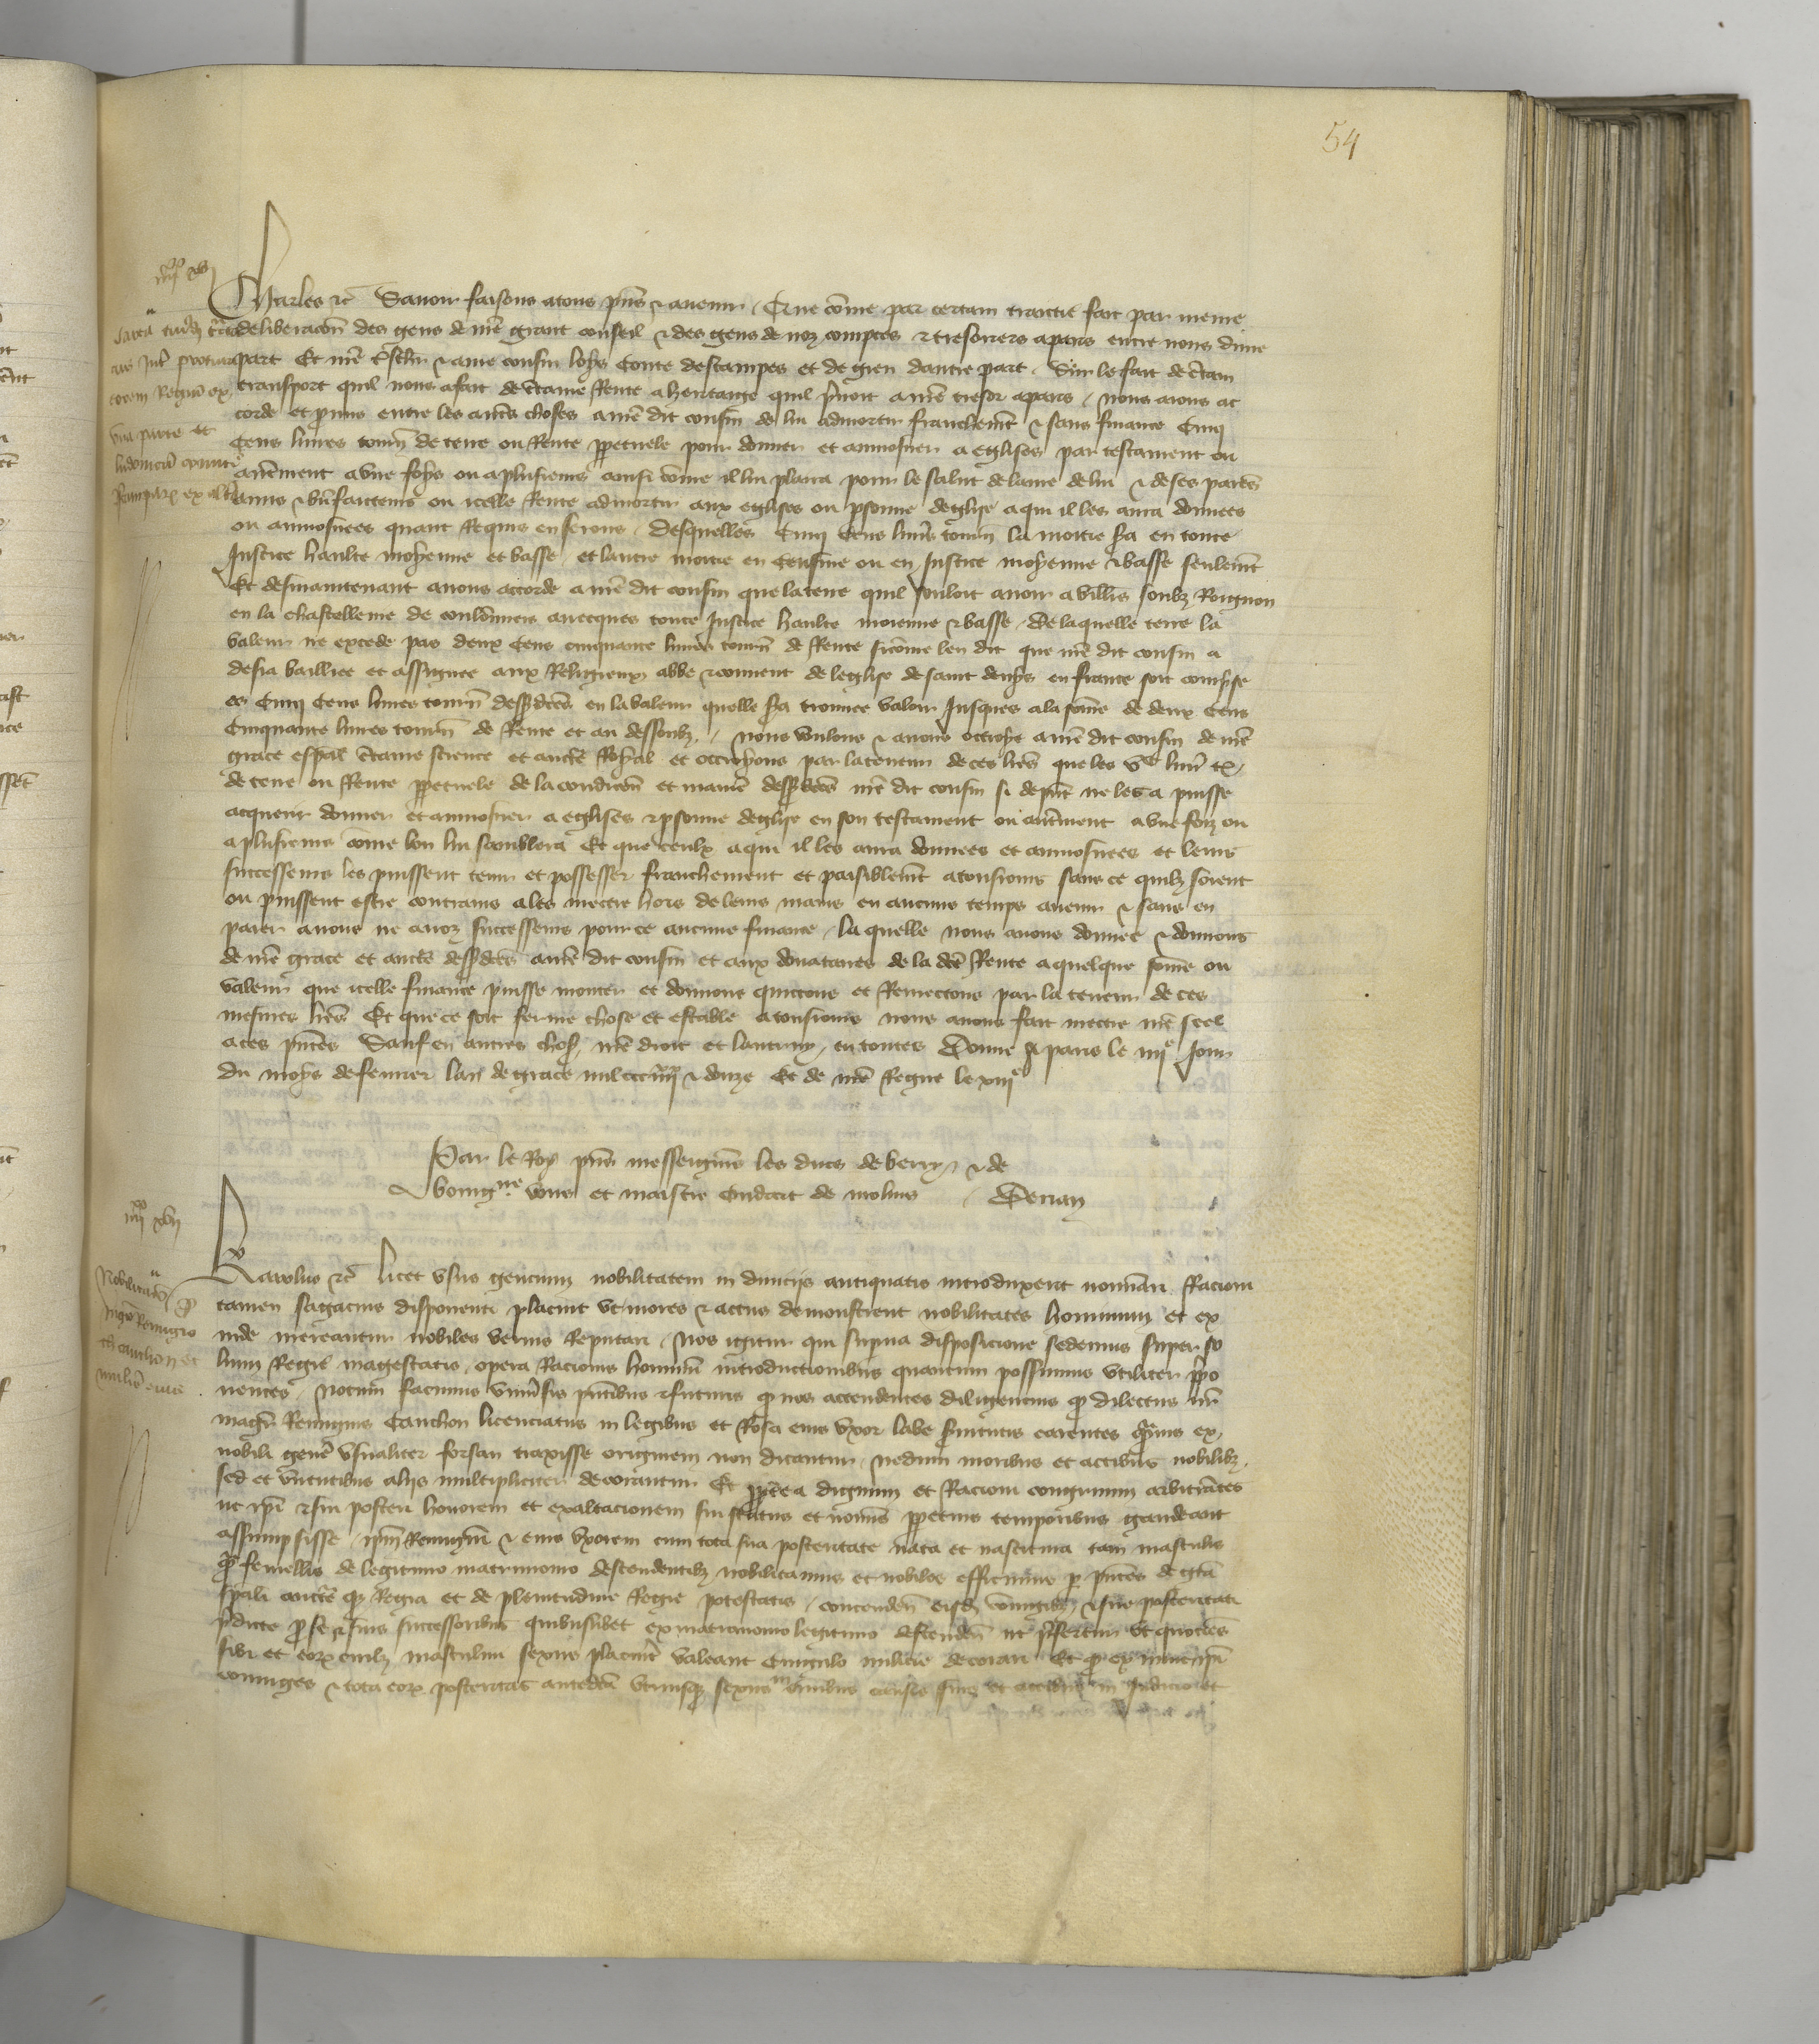 54
iiiixx xvi
Charles etc Savoir faisons a tous pñs & avenir Que cõme par certain traictie fait par meure
deliberacõn des gens de nr̃e grant conseil & des gens de noz comptes & tresoriers a paris entre nous dune
part Et nr̃e tr̃schr & ame cousin loys Conte destampes et de gien dautre part Sur le fait de c̃tain
transport quil nous a fait de c̃taine Rente a heritage quil p̃noit a nr̃e tresor a paris / nous avons ac
corde et promis entre les aut̃s choses a nr̃e dit cousin de lui admortir franchem̃t & sans finance Cinq
Cens livres tourñ de terre ou Rente p̱petuele pour donner et aumosner a eglises par testament ou
aut̃ment a une foys ou a plusieurs ainsi cõme il lui plaira pour le salut de lame de lui & de ses parẽs
amis & bñfaicteurs ou icelle Rente admortir aux eglises ou p̱sonne deglise a qui il les aura donnees
ou aumosnees quant Requis en serons / desquelles Cinq Cens livr̃s tourñ la moitie s̃a en toute
Justice haulte moyenne et basse / et lautre moitie en Censive ou en Justice moyenne & basse seulem̃t
Et desmaintenant avons accorde a nr̃e dit cousin que la terre quil souloit avoir a villrs soubz Roignon
en la chastellenie de coulõmiers avecques toute Justice haulte moienne & basse / de laquelle terre la
valeur ne excede pas deux Cens cinquante livres tourñ de Rente sicõme len dit que nr̃e dit cousin a
desia bailliee et assignee aux Religieux abbe & couvent de leglise de saint denys en france soit comp̃se
es Cinq Cens livres tourñ dessusdc̃es en la valeur quelle s̃a trouvee valoir Jusques a la sõme de deux Cens
Cinquante livres tourñ de Rente et au dessoubz / nous voulons & avons octroye a nr̃e dit cousin de nr̃e
grace esp̃al c̃taine science et auctẽ Royal et octroyons par la teneur de ces lr̃es que les vc livr̃ tz
de terre ou Rente p̱petuele de la condicõn et manie͂ dessusdc̃es nr̃e dit cousin si de p̃nt ne les a puisse
acquerir donner et aumosner a eglises & p̱sonne deglise en son testament ou aut̃ment a une foiz ou
a plusieurs cõme bon lui semblera Et que ceulx a qui il les aura donnees et aumosnees et leurs
successeurs les puissent tenir et possesser franchement et paisiblem̃t a tousiours sans ce quilz soient
ou puissent estre contrains a les mectre hors de leurs mains en aucuns temps avenir & sans en
paier a nous ne a noz successeurs pour ce aucune finance / la quelle nous avons donnee & donnons
de nr̃e grace et auctẽ dessusdc̃es a nr̃e dit cousin et aux donataires de la dc̃e Rente a quelque sõme ou
valeur que icelle finance puisse monter et donnons quictons et Remectons par la teneur de ces
mesmes lr̃es Et que ce soit ferme chose et estable a tousiours nous avons fait mectre nr̃e seel
a ces p̃ntes Sauf en autres chos̃ nr̃e droit et lautruy en toutes Donne a paris le iiiie Jour
du moys de fevrier lan de grace mil ccc iiiixx & douze Et de nr̃e Regne le xiiie
Par le Roy p̃ns messeigñs les ducs de berry & de
bourgne vous et maistre Oudart de molins / Derian
iiiixx xvii
Nobilitatõ p̱
magr̃o Remigio
Cauchon et
mulie͂ eius
Karolus etc Licet usus gencium nobilitatem in diviciis antiquatis introduxerit nomĩari Racioni
tamen sagacius disponenti placuit ut mores & actus demonstrent nobilitates hominum et ex
inde mereantur nobiles verius Reputari / Nos igitur qui sup̃na disposicione sedemus super so
lium Regie͂ magestatis / opera Racionis hominũ introductionibus quantum possumus utiliter p̃po
nentes / Notum facimus uniṽsis p̃ntibus & futuris q̱ nos attendentes diligencius q̱ dilectus nr̃
magr̃ Remigius Cauchon licenciatus in legibus et Rosa eius uxor labe s̃vitutis carentes q̃mvis ex
nobili gen̄e usualiter forsan traxisse originem non dicantur / nedum moribus et actibus nobilibz
sed et virtutibus aliis multipliciter decorantur Et p̱pt̃ea dignum et Racioni congruum arbitrãtes
ut ip̃i & sui posteri honorem et exaltacionem sui status et nomĩs p̱petuis temporibus gaudeant
assumpsisse / ip̃m Remigiũ & eius uxorem cum tota sua posteritate nata et nascitura tam masculis
q̃m femellis de legitimo matrimonio descendentibz nobilitamus et nobiles efficimus p̱ p̃ntes de gr̃a
sp̃ali auctẽ qz Regia et de plenitudine Regie potestatis / conceden̄ eisdẽ coniugibz & sue posteritati
p̃dicte p̱ se & suis successoribus quibuslibet ex matrimonio legitimo descenden̄ ut p̃fertur ut quociẽs
sibi et eorz cuilz masculini sexus placu͂it valeant Cingulo milicie decorari Et q̱ ex nunc ip̃i
coniuges & tota eorz posteritas antedc̃a utriusqz sexus in omnibus causis suis et accibus in Judicio et